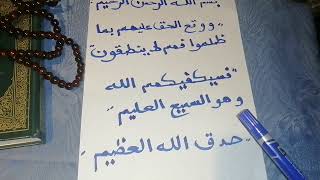 بسم الله الرحمن الرحيم
„ووقع الحق عليهم بما
ظلموا فهم لا ينطقون“
„فسيكفيكهم الله
وهو السميع العليم“
„صدق الله العظيم“